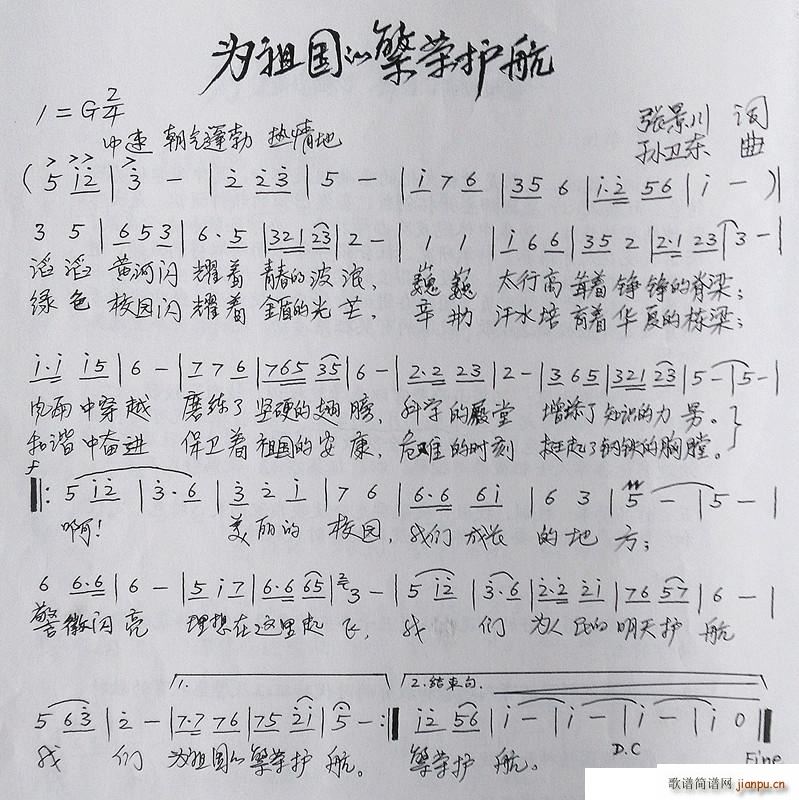 为祖国的繁荣护航
1=G 2/4
中速 朝气蓬勃 热情地
张景川 词
孙卫东 曲
( 5 i2 | 3 - | 2 23 | 5 - | i 7 6 | 35 6 | i·2 56 | i - )|
3 5 | 6 5 3 | 6·5 | 321 23 | 2 - | 1 1 | i 6 6 | 35 2 | 2·1 23 | 3 - |
滔滔 黄河闪耀着 青春的波浪, 巍巍 太行高耸着 铮铮的脊梁;
绿色 校园闪耀着 金盾的光芒, 辛勤 汗水培育着 华夏的栋梁;
i·i i5 | 6 - | 7 7 6 | 765 35 | 6 - | 2·2 23 | 2 - | 3 6 5 | 321 23 | 5 - | 5 - |
风雨中穿越 磨练了 坚硬的翅膀, 科学的殿堂 增添了知识的力量。
和谐中奋进 保卫着祖国的安康, 危难的时刻 挺起了钢铁的胸膛。
f
5 i2 | 3·6 | 3 2 i | 7 6 | 6·6 6i | 6 3 | 5 - | 5 - |
啊! 美丽的 校园, 我们成长 的地方;
6 6·6 | 6 - | 5 i 7 | 6·6 65 | 3 - | 5 i2 | 3·6 | 2·2 2i | 76 57 | 6 - |
警徽闪亮 理想在这里起飞, 我们 为人民的明天护航
1. 2.结束句.
5 63 | 2 - | 7·7 76 | 75 2i | 5 - :| i2 56 | i - | i - | i - | i 0 |
我们 为祖国的繁荣护航。 繁荣护航。
D.C
Fine
歌谱简谱网
jianpu.cn